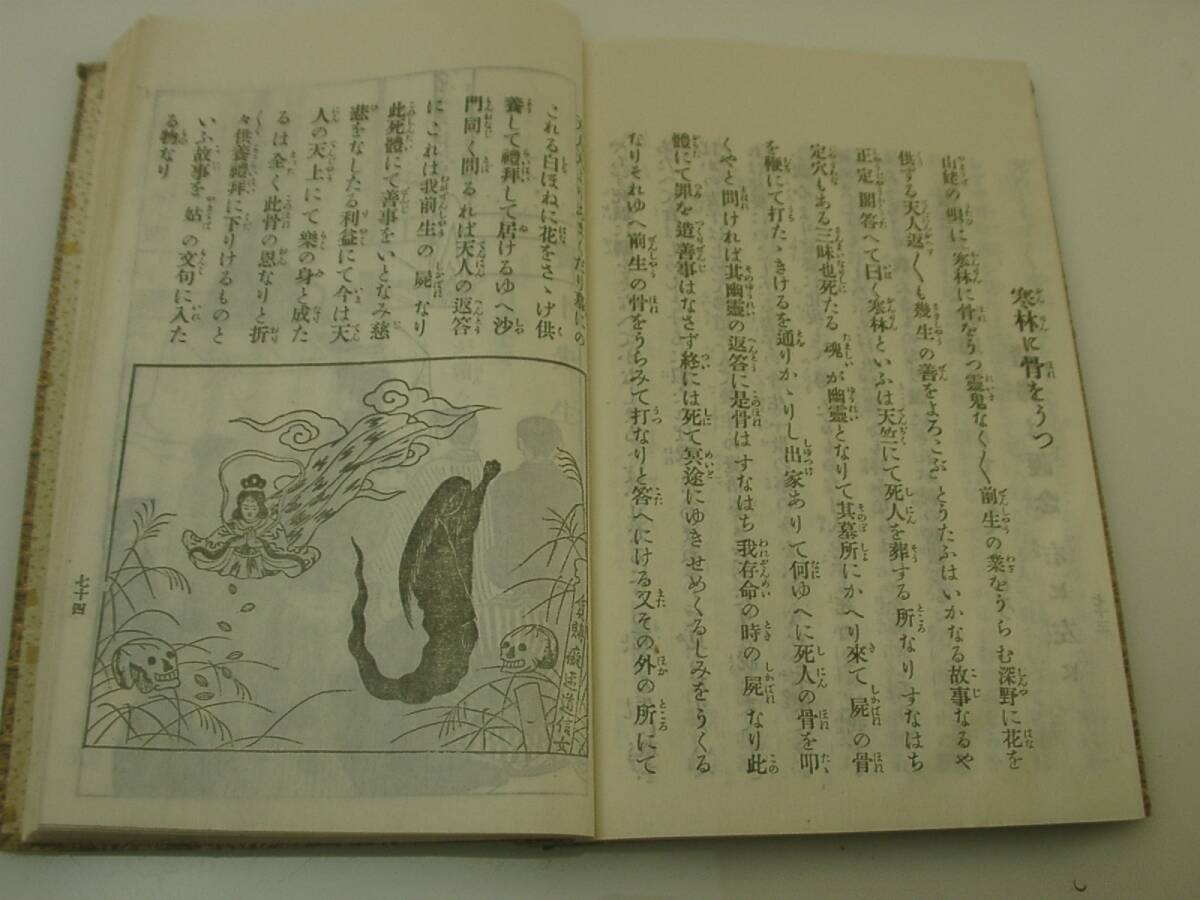 寒林に骨をうつ
山姥の唄に寒林に骨をうつ靈鬼なく〳〵前生の業をうらむ深野に花を
供する天人返〳〵も幾生の善をよろこぶとうたふはいかなる故事なるや
正定聞答へて曰く寒林といふは天竺にて死人を葬する所なりすなはち
定穴もある三昧也死たる魂が幽靈となりて其墓所にかへり來て屍の骨
を鞭にて打たゝきけるを通りかゝりし出家ありて何ゆへに死人の骨を叩
くやと問ければ其幽靈の返答に是骨はすなはち我存命の時の屍なり此
體にて罪を造善事はなさず終には死て冥途にゆきせめくるしみをうくる
なりそれゆへ前生の骨をうらみて打なりと答へにける又その外の所にて
これる白ほねに花をさゝげ供
養して禮拜して居けるゆへ沙
門同く問るれば天人の返答
にこれは我前生の屍なり
此死體にて善事をいとなみ慈
悲をなしたる利益にて今は天
人の天上にて樂の身と成た
るは全く此骨の恩なりと折
々供養禮拜に下りけるものと
いふ故事を姑の文句に入た
る物なり
道信女
七十四